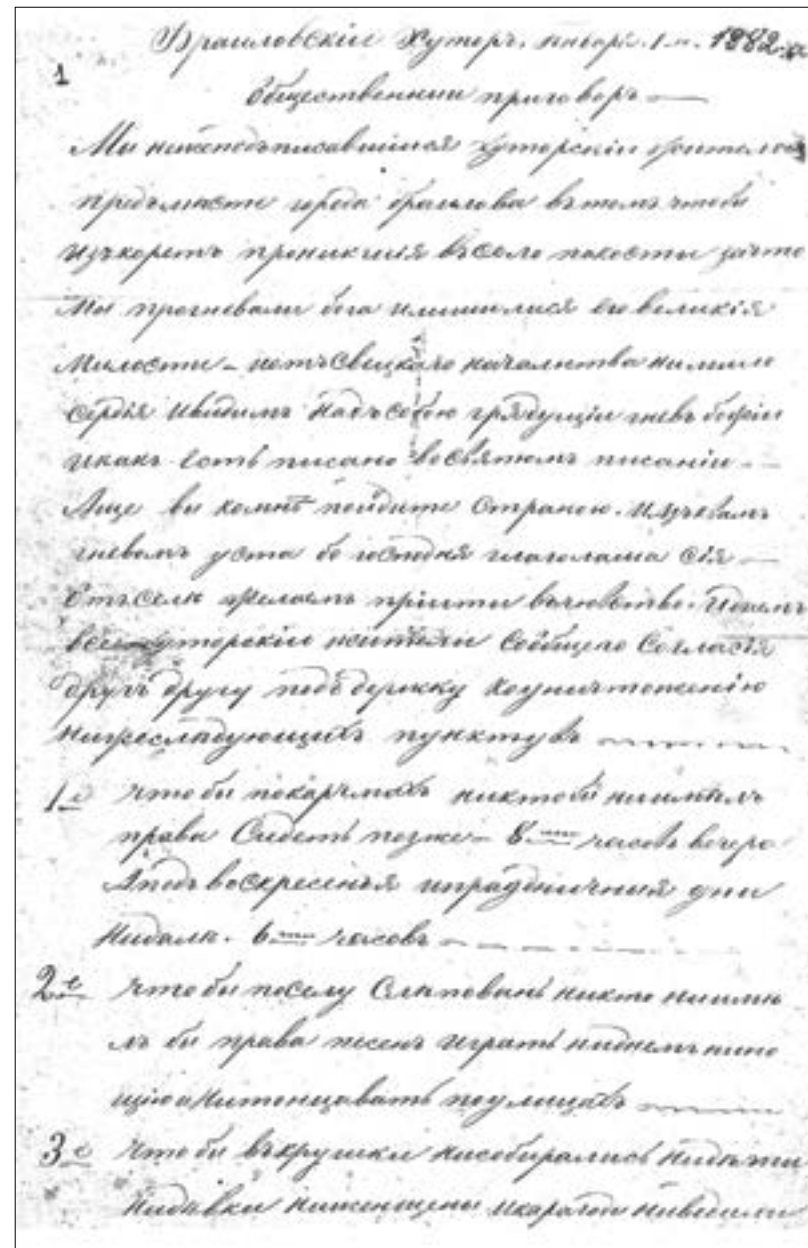 Браиловскіи Хуторъ. январ. 1-го. 1882-го
1
Общественнии приговоръ —
Мы нижеподъписавшиися хуторскіи жители
предъмѣсти города браилова вътомъ чтобы
изъкоретъ проникшия въсело пакости зачто
Мы прогневали бога илишилися его великія
Милости – нетъ Свецкаго началнтва нимило
сердія ивидимъ надъсобою грядущіи гневъ божіи
икакъ Есть писано восвятомъ писаніи. –
Аще ви комнѣ поидите Страною. Изъквамъ
гневомъ уста бо господня глаголаша Сія —
Отъселѣ желаемъ пріити вьчювство. Идаемъ
всеи хуторскіе жители Собщего Согласія
другъ другу подъдержку коуничтоженію
нижреследующихъ пунктувъ
1е чтоби покарчмахъ никтоби ниимелъ
права Сидеть позже – 8ми часовъ вечера
Аподъ воскресенья ипраздничния дни
Нидалѣ. 6ти часовъ
2е чтоби поселу Слѣповань никто ниимѣ
лъ би права песенъ играть ниднемъ нино
щію Анитонцавать поулицахъ
3е Чтоби въкрушки нисобирались нидѣти
нидѣвки ниженщены икарагоди ниводили